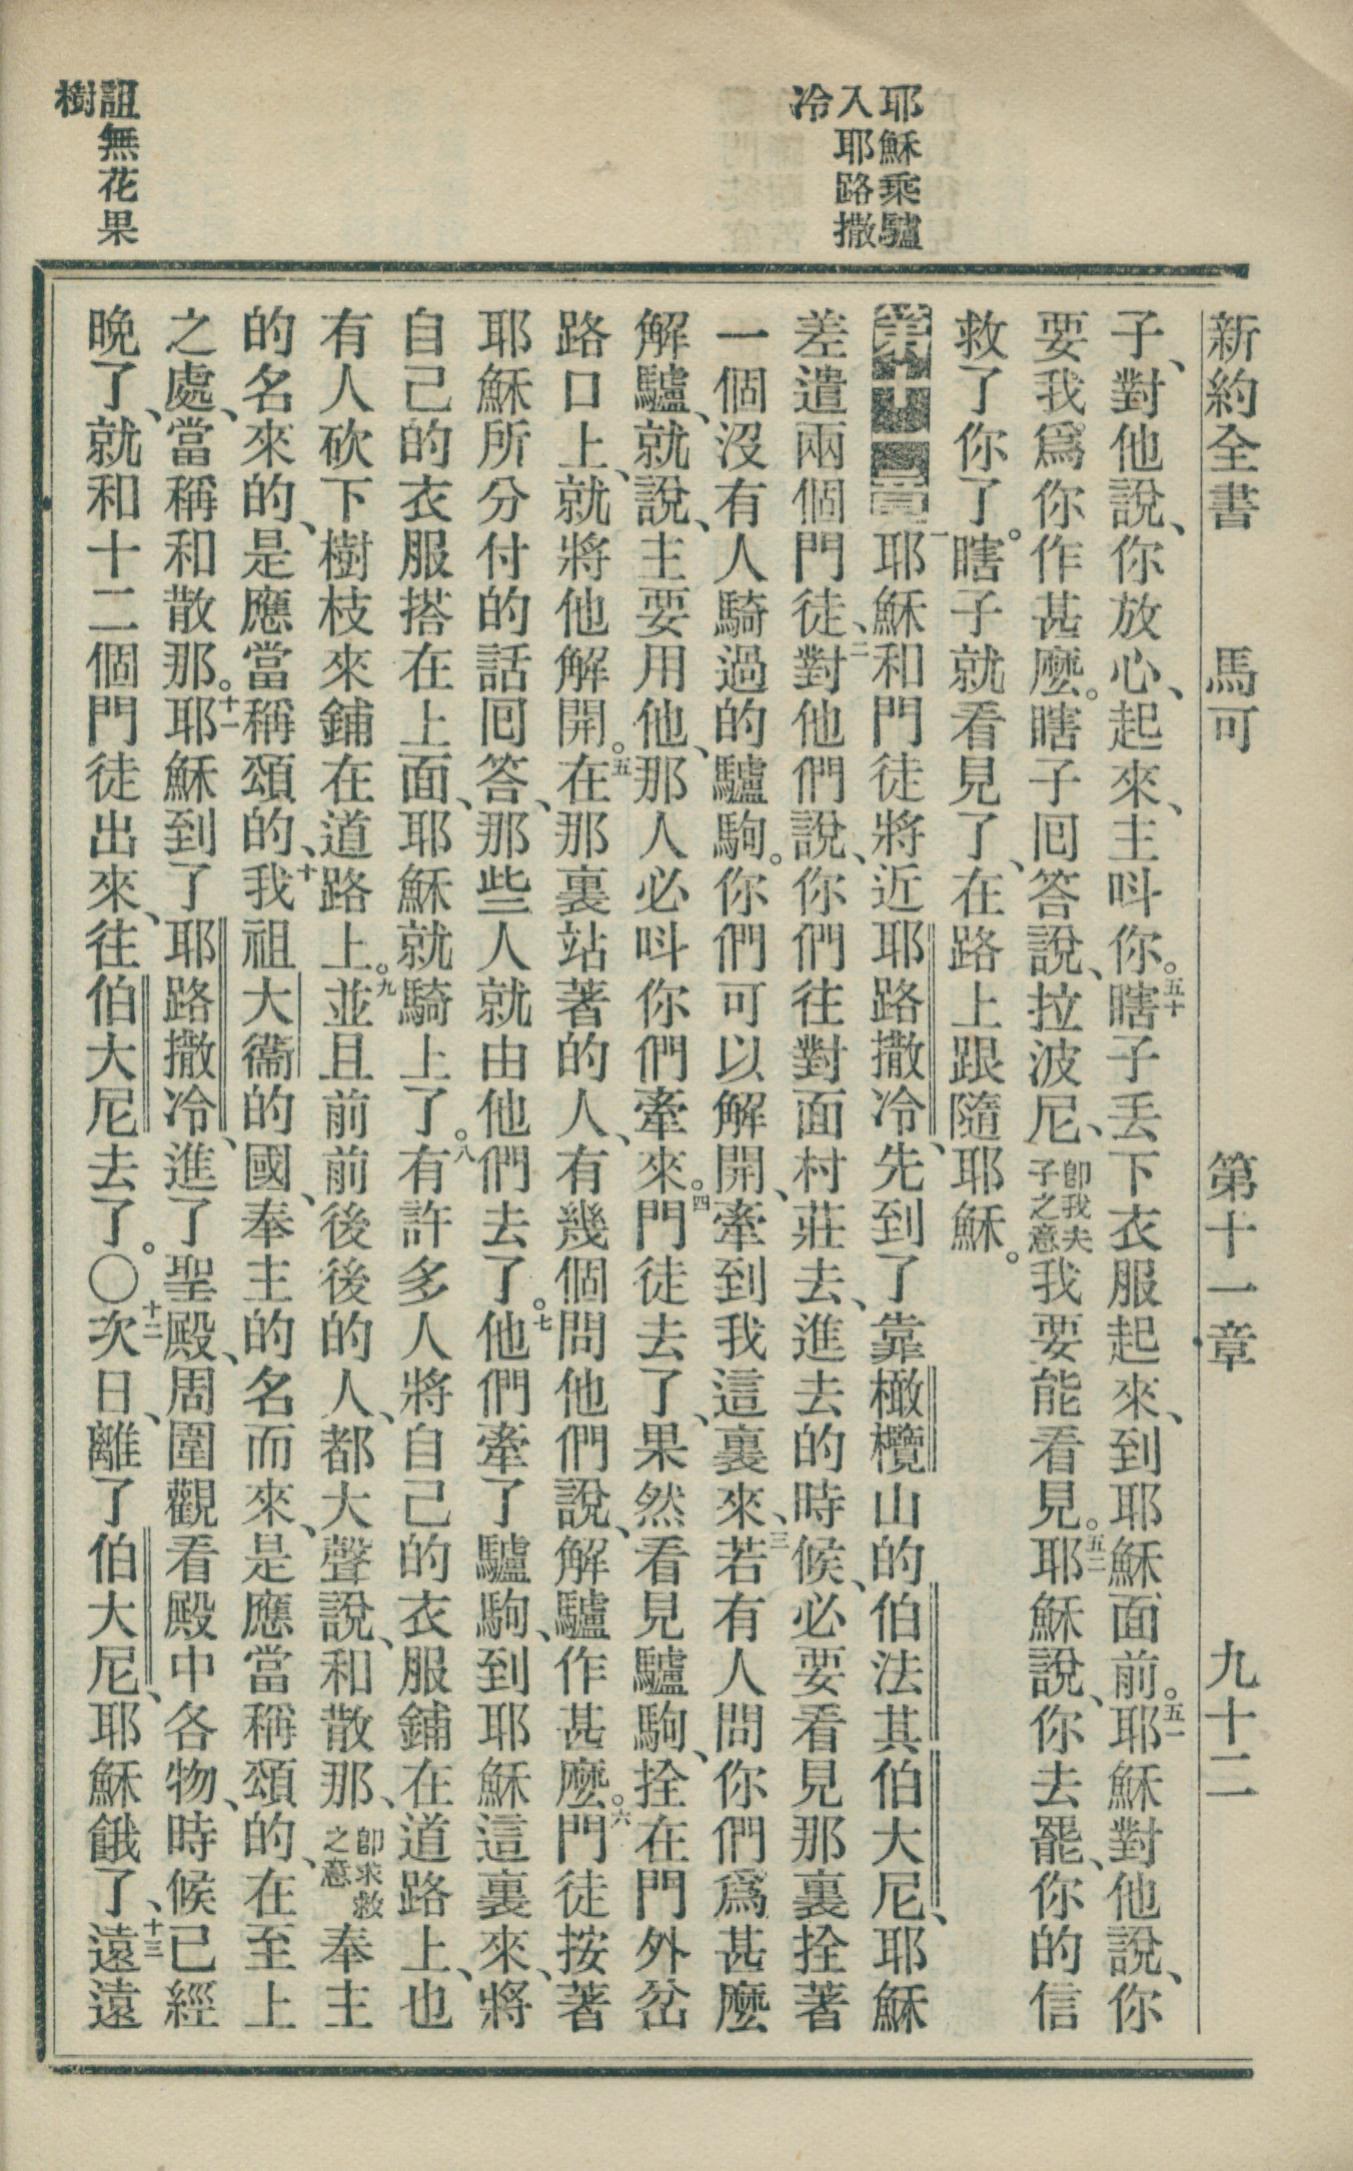 新約全書 馬可 第十一章 九十二
耶穌乘驢
入耶路撒
冷
詛無花果
樹
子、對他說、你放心、起來、主呌你。五十瞎子丢下衣服起來、到耶穌面前。五一耶穌對他說、你
要我爲你作甚麽。瞎子囘答說、拉波尼、卽我夫子之意我要能看見。五二耶穌說、你去罷、你的信
救了你了。瞎子就看見了、在路上跟隨耶穌。
第十一章一耶穌和門徒將近耶路撒冷、先到了靠橄欖山的伯法其伯大尼、耶穌
差遣兩個門徒、二對他們說、你們往對面村莊去、進去的時候、必要看見那裏拴著
一個沒有人騎過的驢駒。你們可以解開、牽到我這裏來、三若有人問你們爲甚麽
解驢、就說、主要用他、那人必呌你們牽來。四門徒去了、果然看見驢駒、拴在門外岔
路口上、就將他解開。五在那裏站著的人、有幾個問他們說、解驢作甚麽。六門徒按著
耶穌所分付的話囘答、那些人就由他們去了。七他們牽了驢駒、到耶穌這裏來、將
自己的衣服搭在上面、耶穌就騎上了。八有許多人將自己的衣服鋪在道路上、也
有人砍下樹枝來鋪在道路上。九並且前前後後的人、都大聲說、和散那、卽求救之意奉主
的名來的、是應當稱頌的、十我祖大衞的國、奉主的名而來、是應當稱頌的、在至上
之處、當稱和散那。十一耶穌到了耶路撒冷、進了聖殿、周圍觀看殿中各物、時候已經
晚了、就和十二個門徒出來、往伯大尼去了。〇十二次日、離了伯大尼、耶穌餓了、十三遠遠